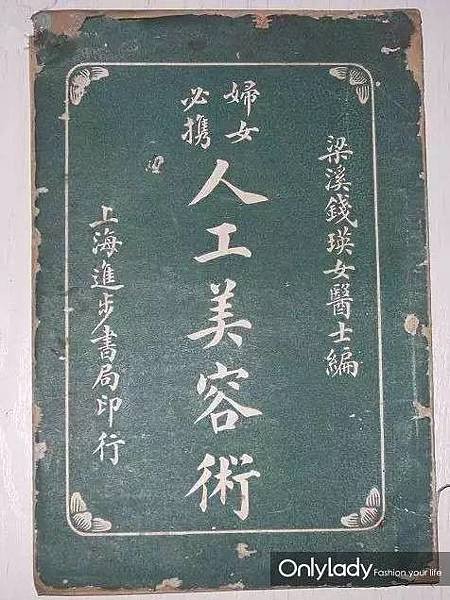 梁溪錢瑛女醫士編
婦女
必携
人工美容術
上海進步書局印行
Onlylady Fashion your life